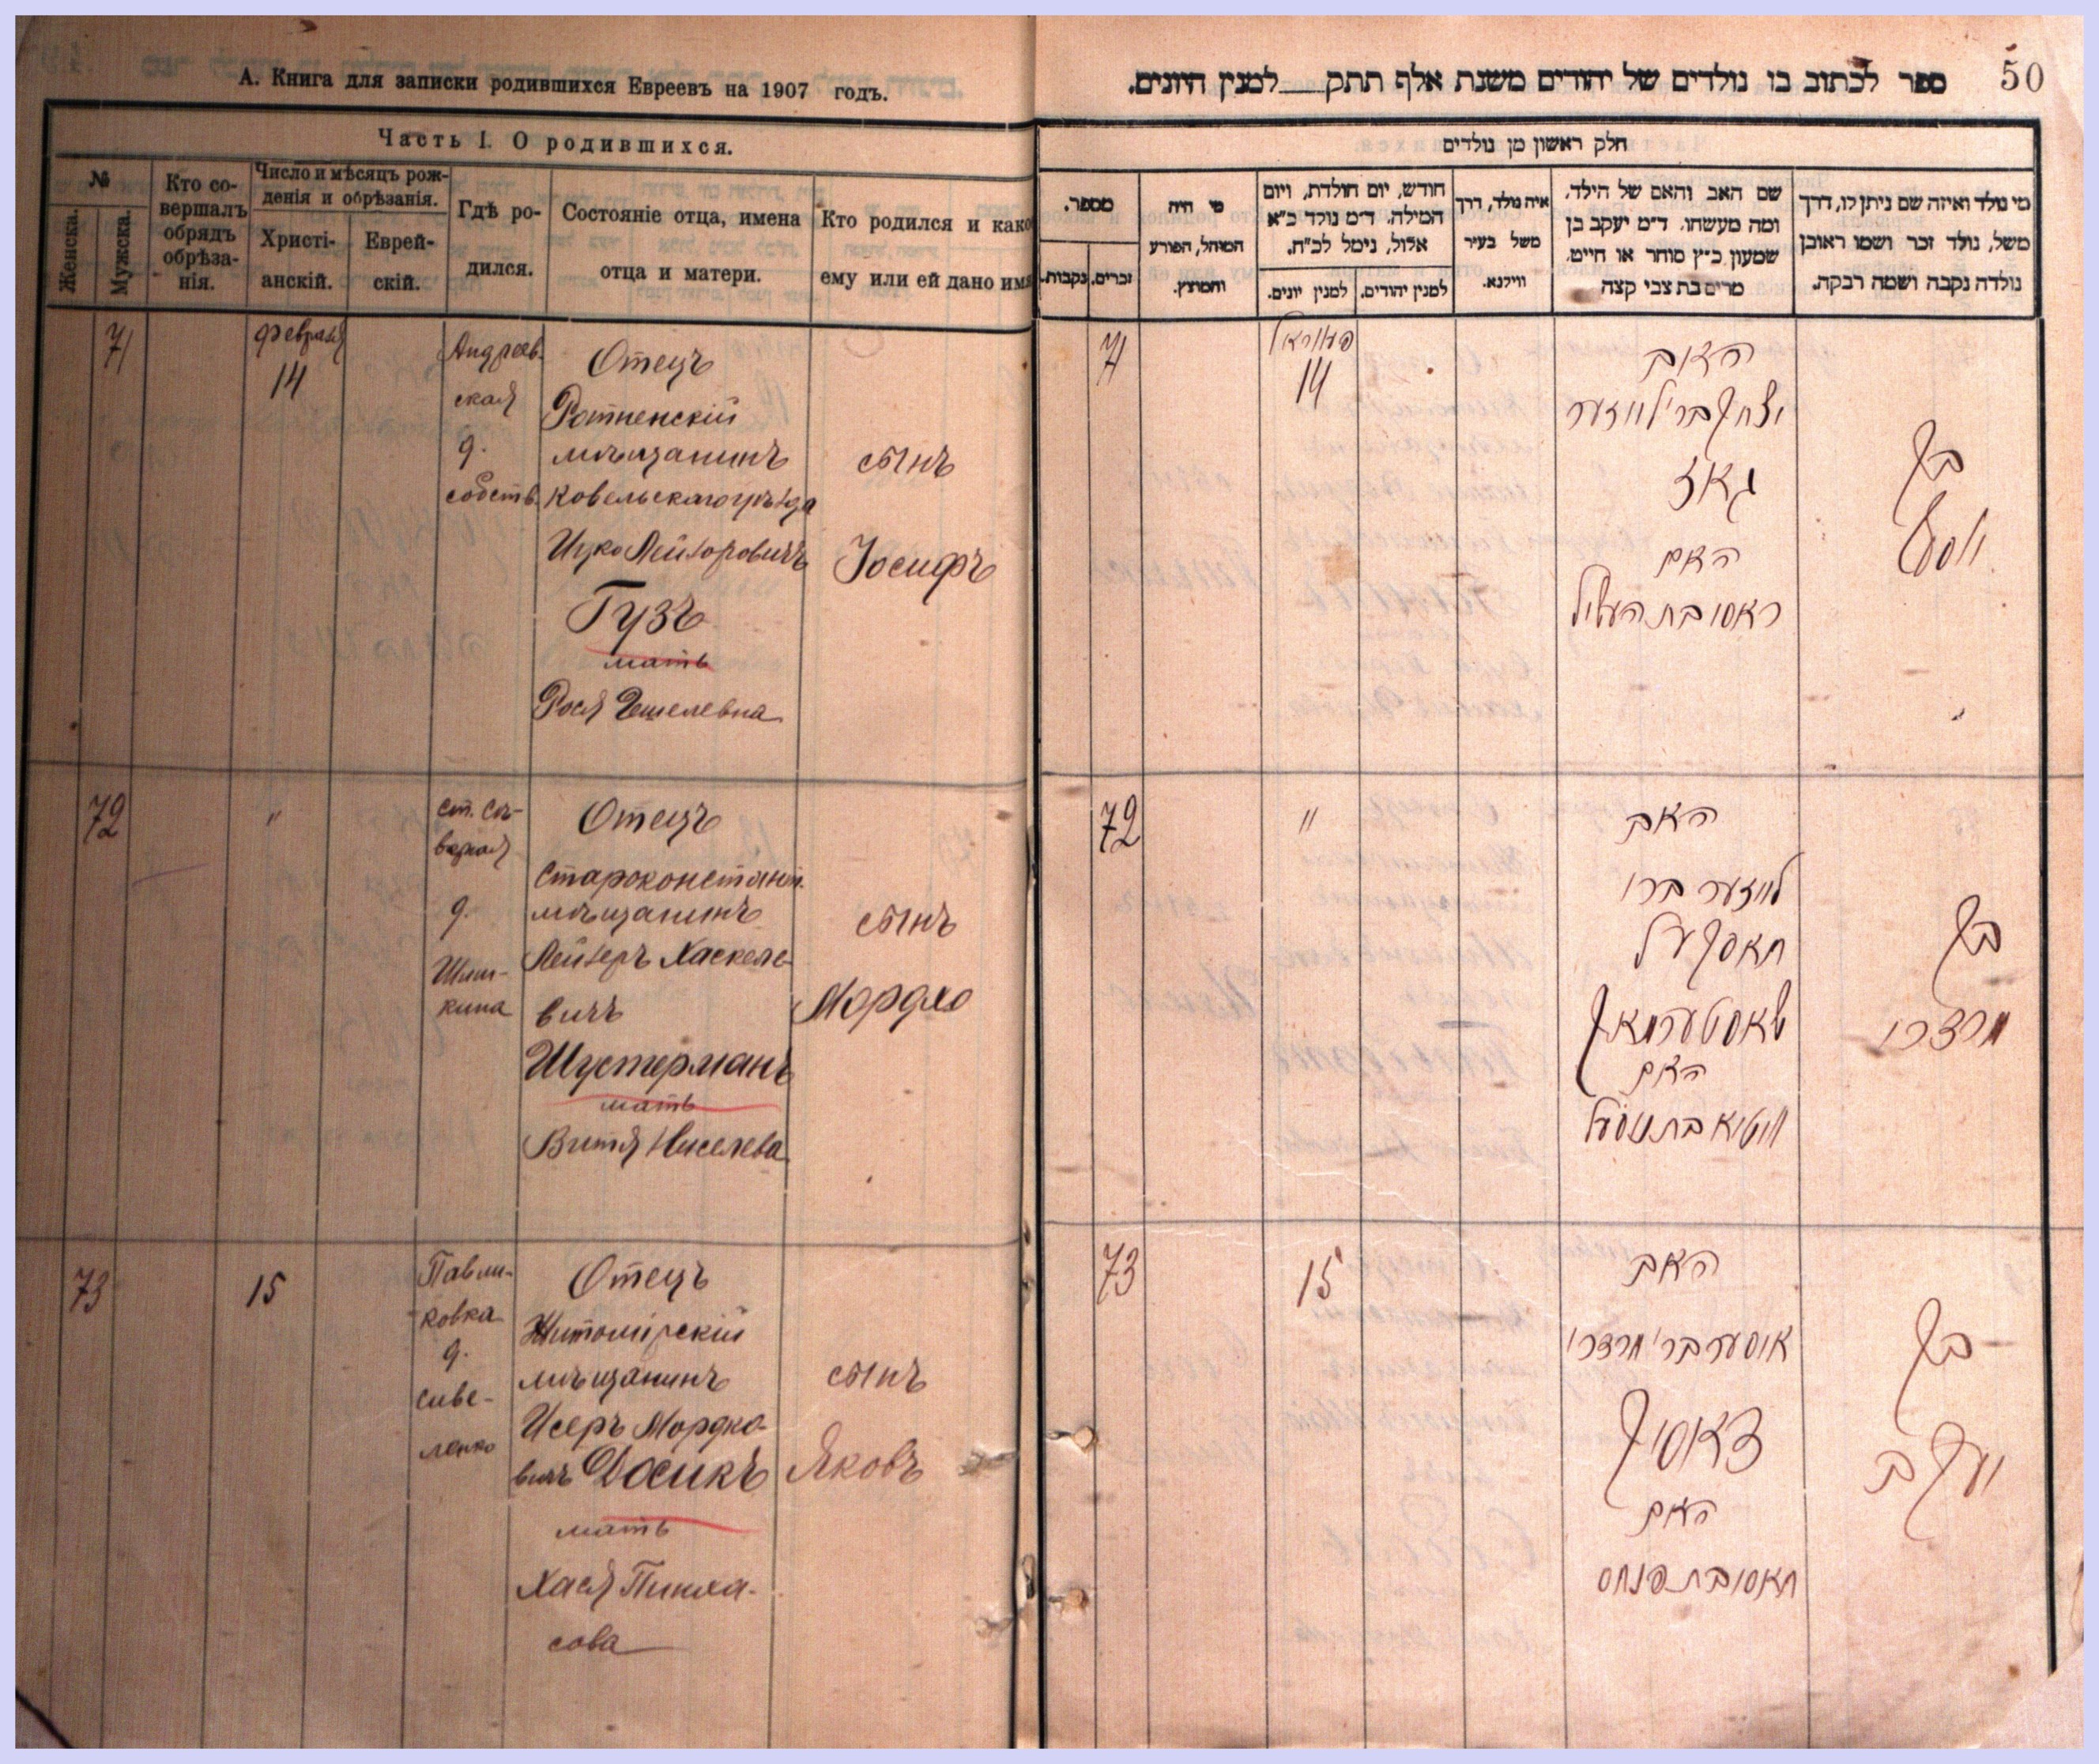 А. Книга для записки родившихся Евреевъ на 1907 годъ.
Часть I. О родившихся.
№
Женска.
Мужска.
Кто со-
вершалъ
обрядъ
обрѣза-
нія.
Число и мѣсяцъ рож-
денія и обрѣзанія.
Христі-
анскій.
Еврей-
скій.
Гдѣ ро-
дился.
Состояніе отца, имена
отца и матери.
Кто родился и како
ему или ей дано имя
71
Февраля
14
Андреев-
ская
д.
собств.
Отецъ
Ратненскій
мѣщанинъ
Ковельскаго уѣзда
Ицко Лейзоровичъ
Гузъ
мать
Рося Гешелевна
сынъ
Іосифъ
72
"
д.
Шиш-
кина
Отецъ
Староконстант.
мѣщанинъ
Лейзеръ Хаскеле-
вичъ
Шустерманъ
мать
Витя Нисслева
сынъ
Мордхо
73
15
Павли-
ковка
д.
Саве-
ленко
Отецъ
Житомірскій
мѣщанинъ
Исеръ Мордко-
вичъ Досикъ
мать
Хася Пинха-
сова
сынъ
Яковъ
50
ספר לכתוב בו נולדים של יהודים משנת אלף תתק למנין היונים.
חלק ראשון מן נולדים
מי נולד ואיזה שם ניתן לו, דרך
משל, נולד זכר ושמו ראובן
נולדה נקבה ושמה רבקה.
שם האב והאם של הילד,
ומה מעשהו, ד״מ יעקב בן
שמעון כ״ץ סוחר או חייט,
מרים בת צבי קצה
איה נולד, דרך
משל בעיר
ווילנא.
חודש, יום הולדת, ויום
המילה, ד״מ נולד כ״א
אלול, נימל לכ״ח.
למנין יהודים.
למנין יונים.
מי היה
המוהל, הפורע
והמוצץ.
מספר.
זכרים.
נקבות.
71
14
האב
יצחק בר׳ לייזער
גוז
האם
ראסי בת העשיל
בן
יוסף
72
"
האב
לייזער בר׳
חאסקעל
שוסטערמאן
האם
וויטיא בת ניסעל
בן
מרדכי
73
15
האב
איסער בר׳ מרדכי
דאסיק
האם
חאסי בת פנחס
בן
יעקב